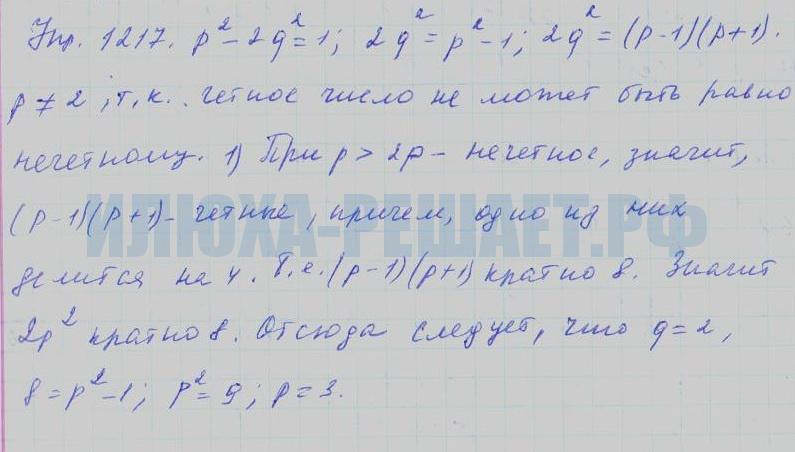 Упр. 1217. p² - 2q² = 1; 2q² = p² - 1; 2q² = (p-1)(p+1).
p ≠ 2, т.к. четное число не может быть равно
нечетному. 1) При p > 2 p - нечетное, значит,
(p-1)(p+1) - четные, причем, одно из них
ИЛЮХА-РЕШАЕТ.РФ
делится на 4. Т.е. (p-1)(p+1) кратно 8. Значит
2q² кратно 8. Отсюда следует, что q = 2,
8 = p² - 1; p² = 9; p = 3.